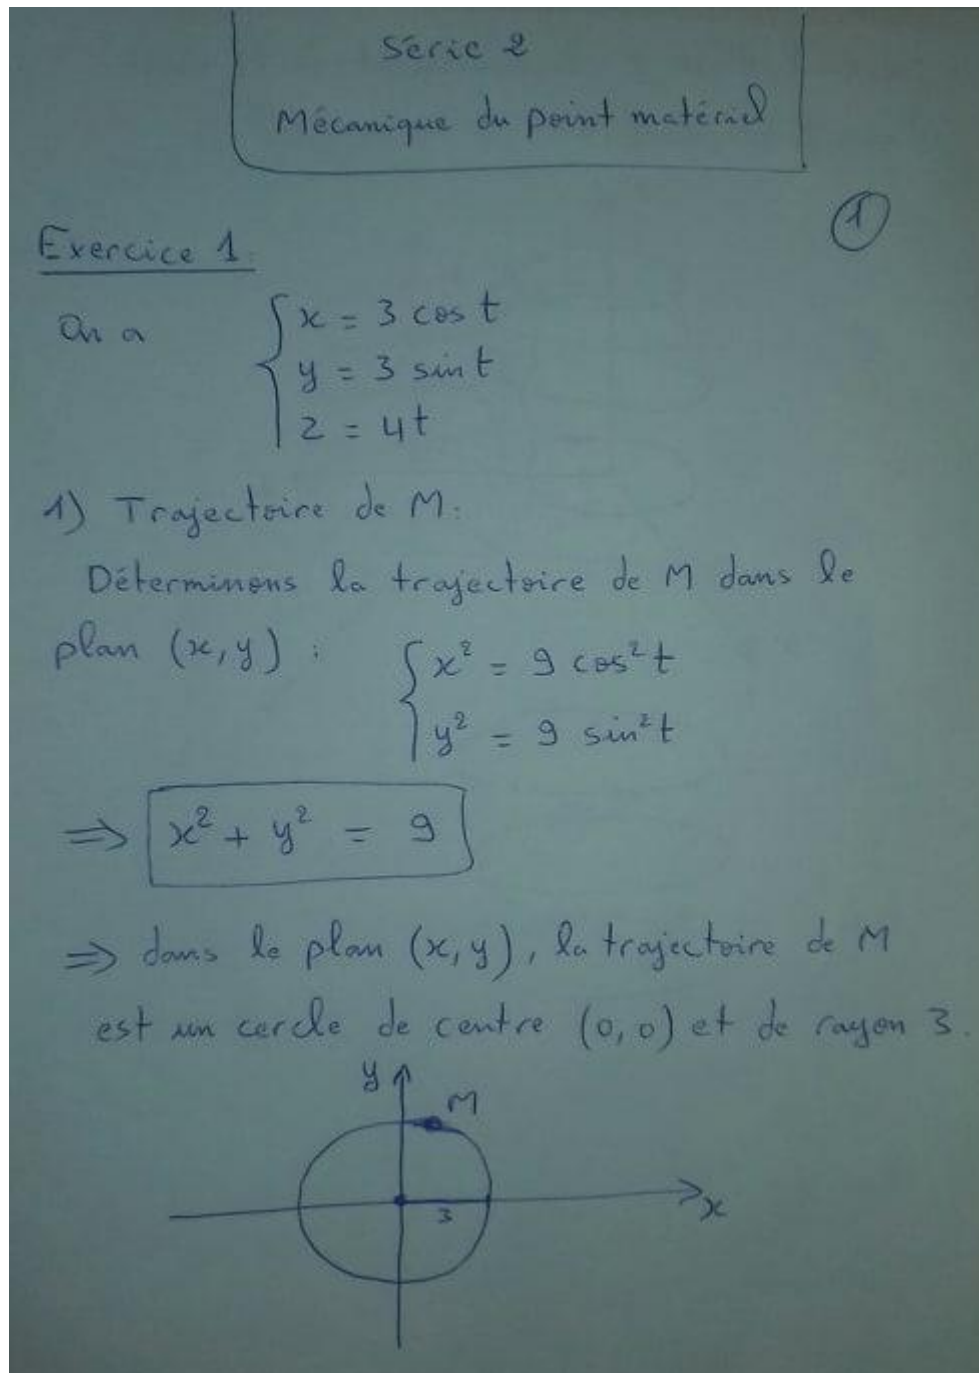 Série 2
Mécanique du point matériel
1
Exercice 1.
On a
x = 3 cos t
y = 3 sin t
z = 4t
1) Trajectoire de M.
Déterminons la trajectoire de M dans le
plan (x, y) :
x² = 9 cos² t
y² = 9 sin² t
⇒ x² + y² = 9
⇒ dans le plan (x, y), la trajectoire de M
est un cercle de centre (0, 0) et de rayon 3.
y
M
3
x